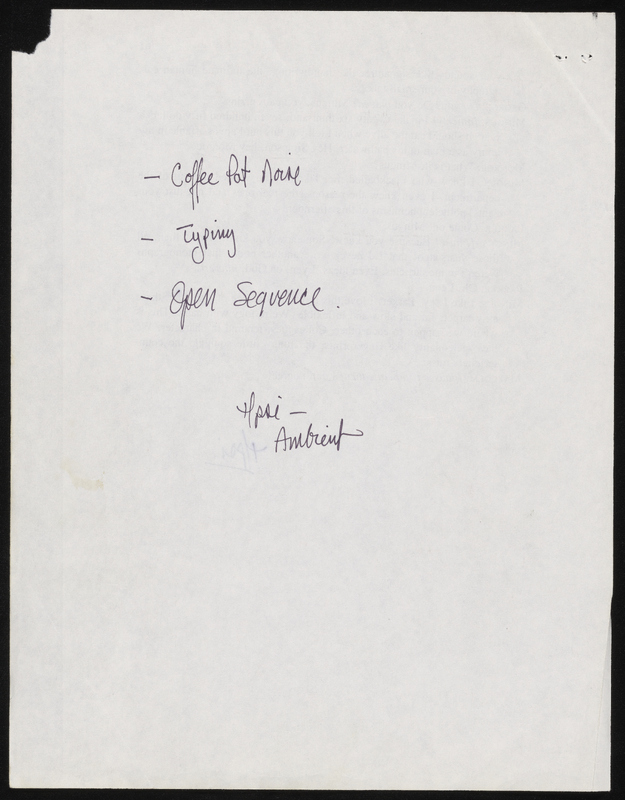 - Coffee Pot Noise
- Typing
- Open Sequence.
Ambient